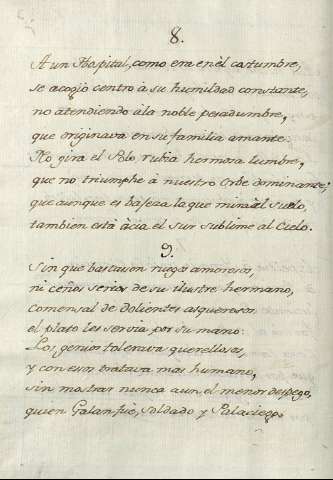 8.
A un Hospital, como era en èl costumbre,
se acogiò centro à su humildad constante,
no atendiendo à la noble pesadumbre,
que originava en su familia amante:
No gira el Polo rubia hermosa lumbre,
que no triumphe à nuestro Orbe dominante;
que aunque es bajeza la que mira àl suelo,
tambien està àcia el sur sublime al Cielo.
9.
Sin que bastasen ruegos amorosos,
ni ceños serios de su ilustre hermano,
comensal de dolientes asquerosos
el plato les servia por su mano:
Los genios tolerava querellosos,
y con esos tratava mas humano,
sin mostrar nunca aun el menor despego,
quien Galan fue, Soldado y Palaciego.